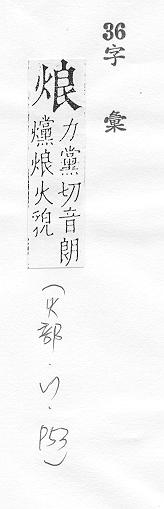 36字彙
烺
力黨切音朗
爣烺火貌
(火部·
P53)